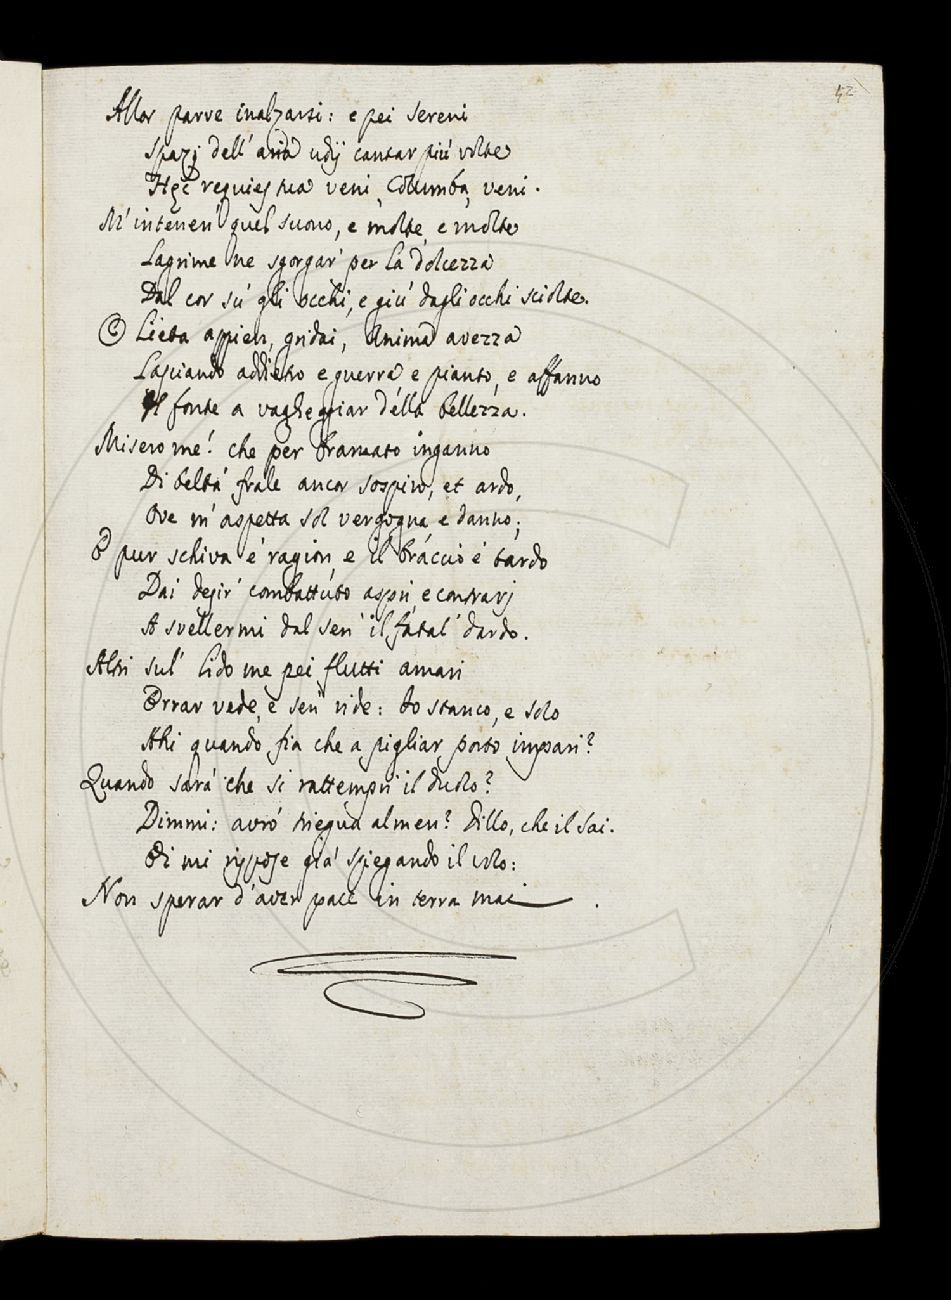 42
Allor parve inalzarsi: e pei sereni
Spazj dell' aria udij cantar piú volte
Hęc requies tua veni, Columba, veni.
M' intenerì quel suono, e molte, e molte
Lagrime ne sgorgar' per la dolcezza
Dal cor sú gli occhi, e giú dagli occhi sciolte.
O Lieta appien, gridai, Anima avezza
Lasciando addietro e guerra e pianto, e affanno
Il fonte a vagheggiar della bellezza.
Misero me! che per bramato inganno
Di beltá frale ancor sospiro, et ardo,
Ove m' aspetta sol vergogna e danno;
E pur schiva é ragion, e il braccio é tardo
Dai desir' combattuto aspri, e contrarj
A svellermi dal sen' il fatal' dardo.
Altri sul' lido me pei flutti amari
Errar vede, e sen' ride: Io stanco, e solo
Ahi quando fia che a pigliar porto impari?
Quando sará che si rattempri il duolo?
Dimmi: avró triegua almen? Dillo, che il sai.
Ei mi rispose giá spiegando il volo:
Non sperar d' aver pace in terra mai.